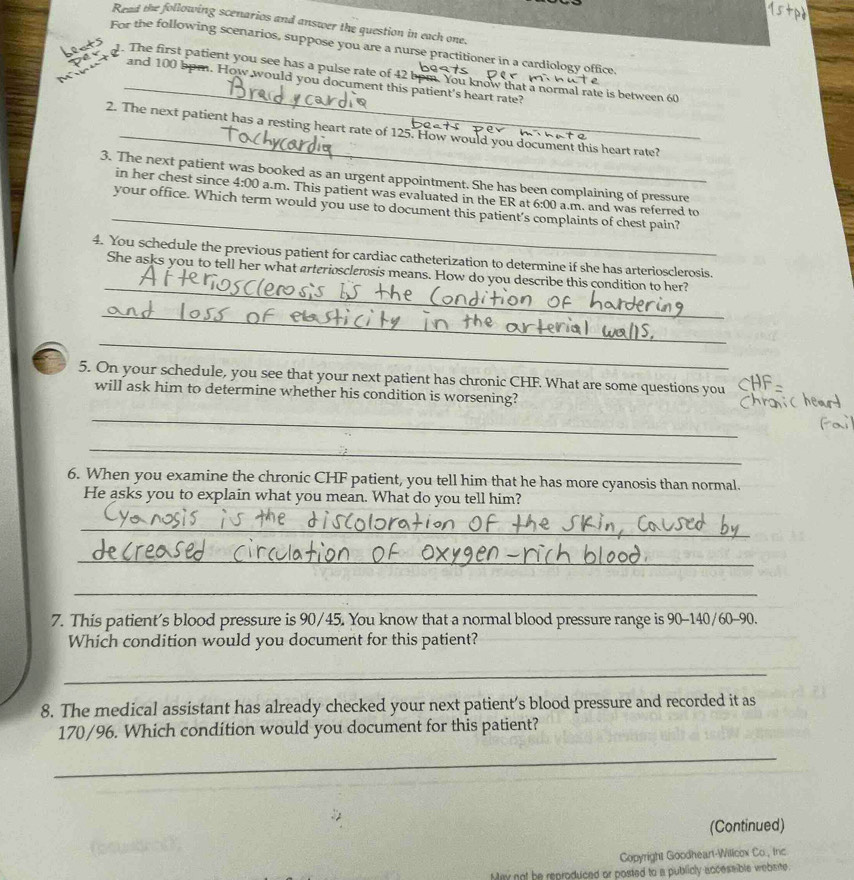 1st pd
Read the following scenarios and answer the question in each one.
For the following scenarios, suppose you are a nurse practitioner in a cardiology office.
beats per minute
beats per minute
1. The first patient you see has a pulse rate of 42 bpm. You know that a normal rate is between 60
and 100 bpm. How would you document this patient's heart rate?
Braidycardia
beats per minute
2. The next patient has a resting heart rate of 125. How would you document this heart rate?
Tachycardia
3. The next patient was booked as an urgent appointment. She has been complaining of pressure
in her chest since 4:00 a.m. This patient was evaluated in the ER at 6:00 a.m. and was referred to
your office. Which term would you use to document this patient's complaints of chest pain?
4. You schedule the previous patient for cardiac catheterization to determine if she has arteriosclerosis.
She asks you to tell her what arteriosclerosis means. How do you describe this condition to her?
Arteriosclerosis is the condition of hardering
and loss of elasticity in the arterial walls.
5. On your schedule, you see that your next patient has chronic CHF. What are some questions you
will ask him to determine whether his condition is worsening?
CHF =
Chronic heart
Fail
6. When you examine the chronic CHF patient, you tell him that he has more cyanosis than normal.
He asks you to explain what you mean. What do you tell him?
Cyanosis is the discoloration of the skin, caused by
decreased circulation of oxygen-rich blood.
7. This patient's blood pressure is 90/45. You know that a normal blood pressure range is 90–140/60–90.
Which condition would you document for this patient?
8. The medical assistant has already checked your next patient's blood pressure and recorded it as
170/96. Which condition would you document for this patient?
(Continued)
Copyright Goodheart-Willcox Co., Inc.
May not be reproduced or posted to a publicly accessible website.